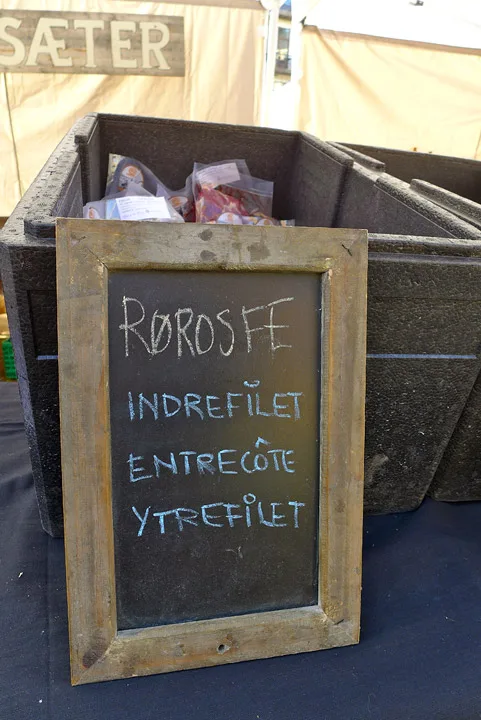 SÆTER
RØROSFE
INDREFILET
ENTRECÔTE
YTREFILET